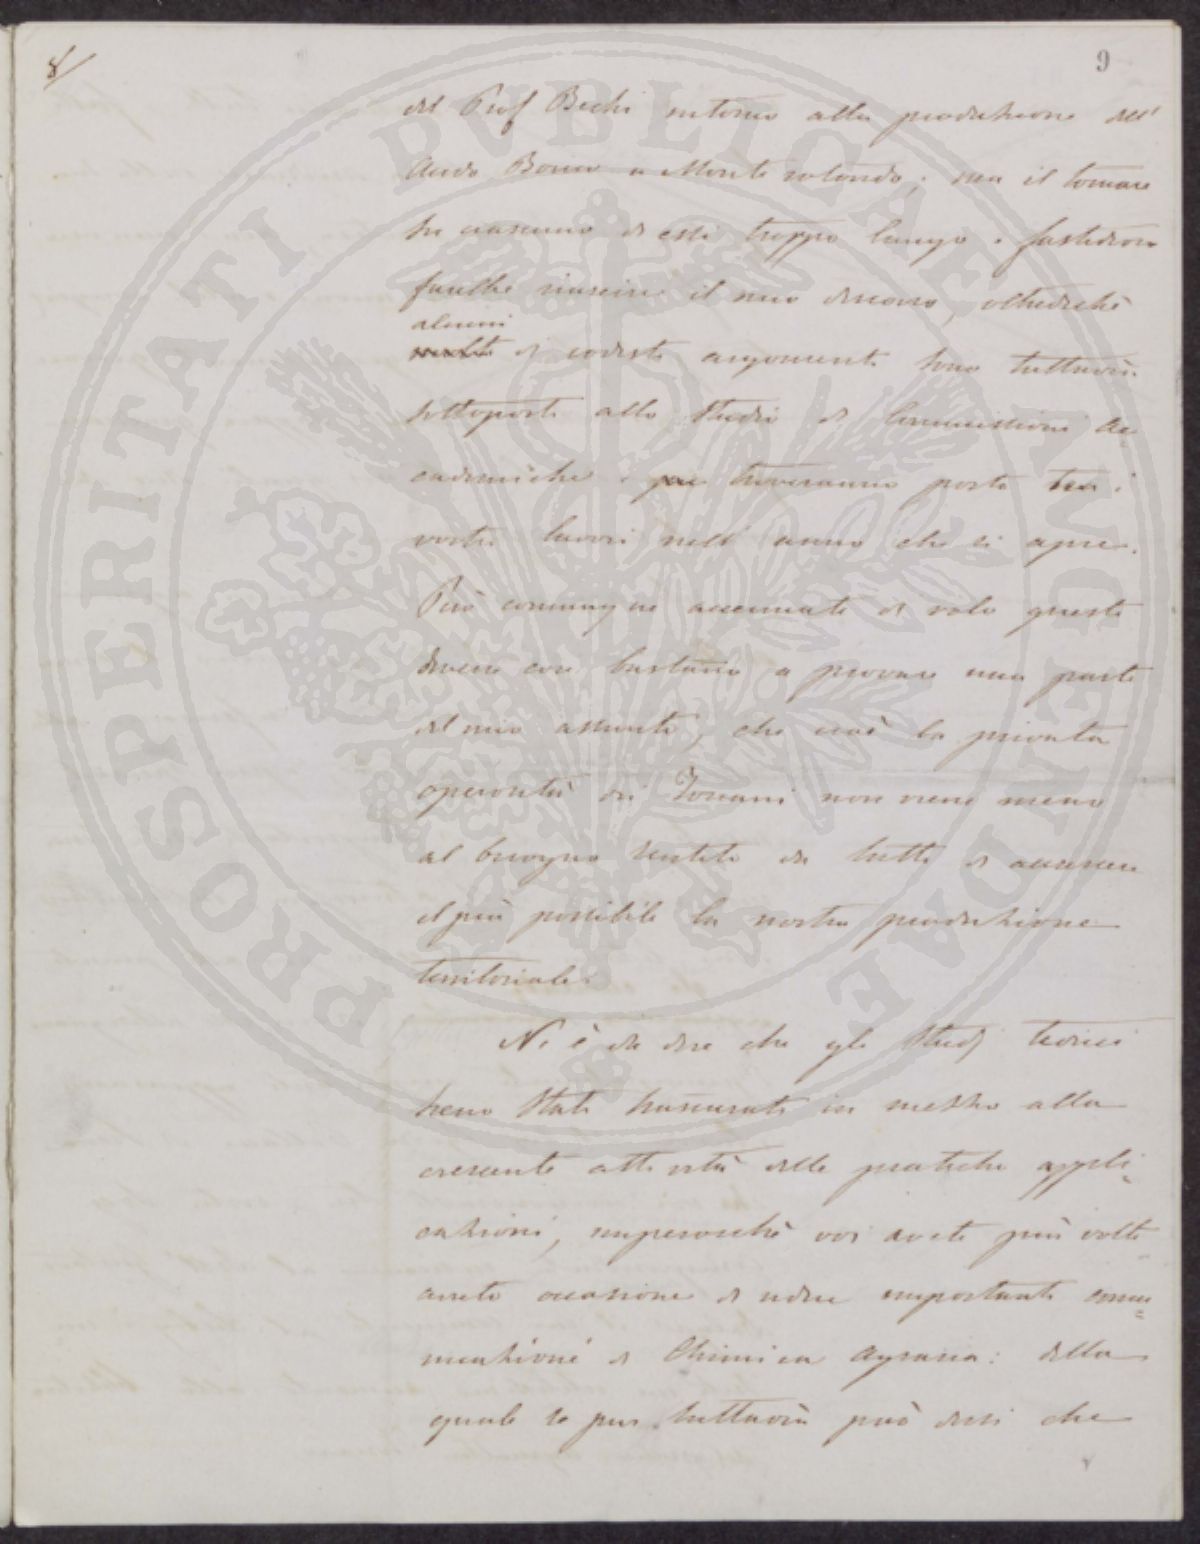 8/
9
del Prof Bechi intorno alla produzione dell'
Acido Borico a Monte rotondo; ma il tornare
su ciascuno di essi troppo lungo e fastidioso
farebbe riuscire il mio discorso, oltredichè
alcuni
molti di codesti argomenti sono tuttavia
sottoposti allo studio di Commissioni Ac=
cademiche e troveranno posto tra i
vostri lavori nell' anno che si apre.
Però comunque accennate di volo queste
diverse cose bastano a provare una parte
del mio assunto, che cioè la privata
operosità dei Toscani non viene meno
al bisogno sentito da tutti di accrescere
il più possibile la nostra produzione
territoriale.
Nè è da dire che gli studj teorici
sieno stati trascurati in mezzo alla
crescente attività delle pratiche appli=
cazioni, imperocchè voi avete più volte
avuto occasione di udire importanti comu=
nicazioni di Chimica Agraria: della
quale se pur tuttavia può dirsi che
PROSPERITATI PVBLICAE AVGENDAE